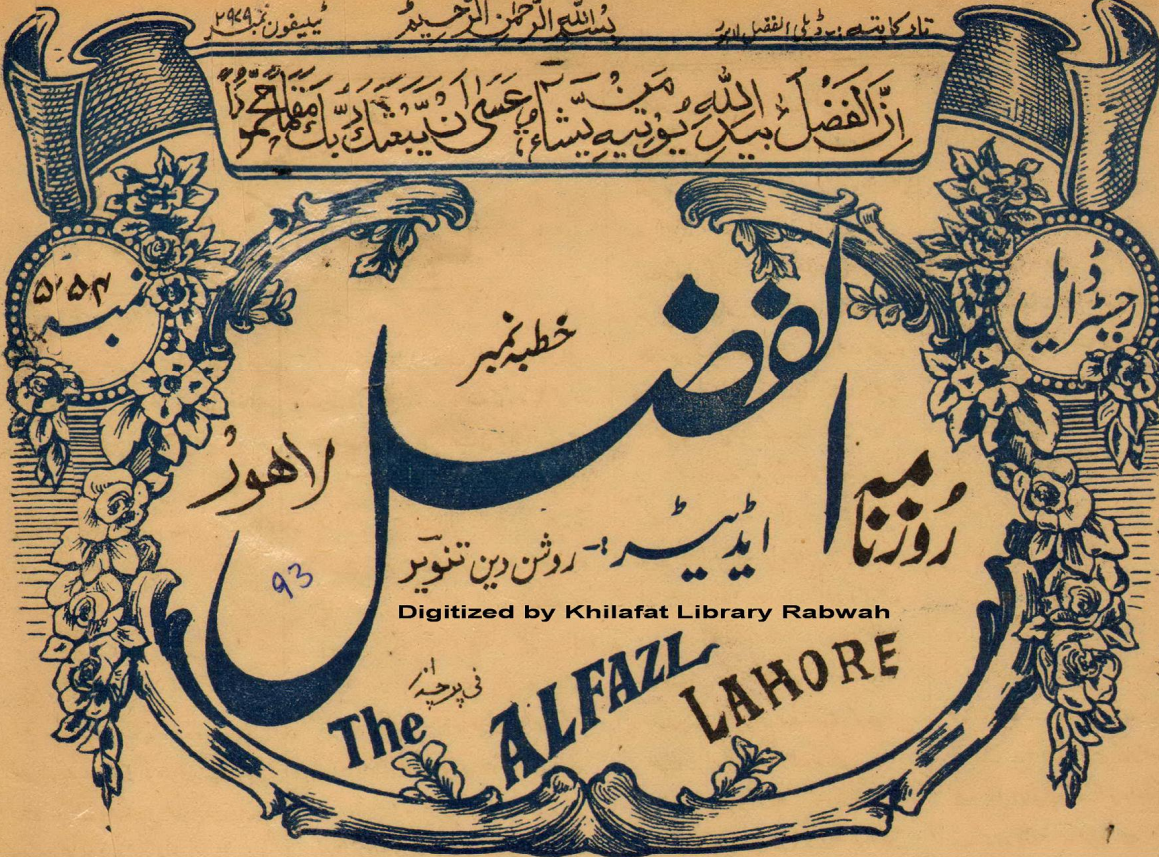 تار کا پتہ :- ڈیلی الفضل لاہور
بِسْمِ اللّٰهِ الرَّحْمٰنِ الرَّحِيْمِ
ٹیلیفون نمبر ۲۹۷۹
اِنَّ الْفَضْلَ بِیَدِ اللّٰهِ یُؤْتِیْهِ مَنْ یَّشَآءُ عَسٰی اَنْ یَّبْعَثَكَ رَبُّكَ مَقَامًا مَّحْمُوْدًا
رجسٹرڈ ایل
نمبر ۵۲۵۴
خطبہ نمبر
روزنامہ
الفضل
لاہور
ایڈیٹر :- روشن دین تنویر
93
Digitized by Khilafat Library Rabwah
فی پرچہ ۱؍
The ALFAZL LAHORE